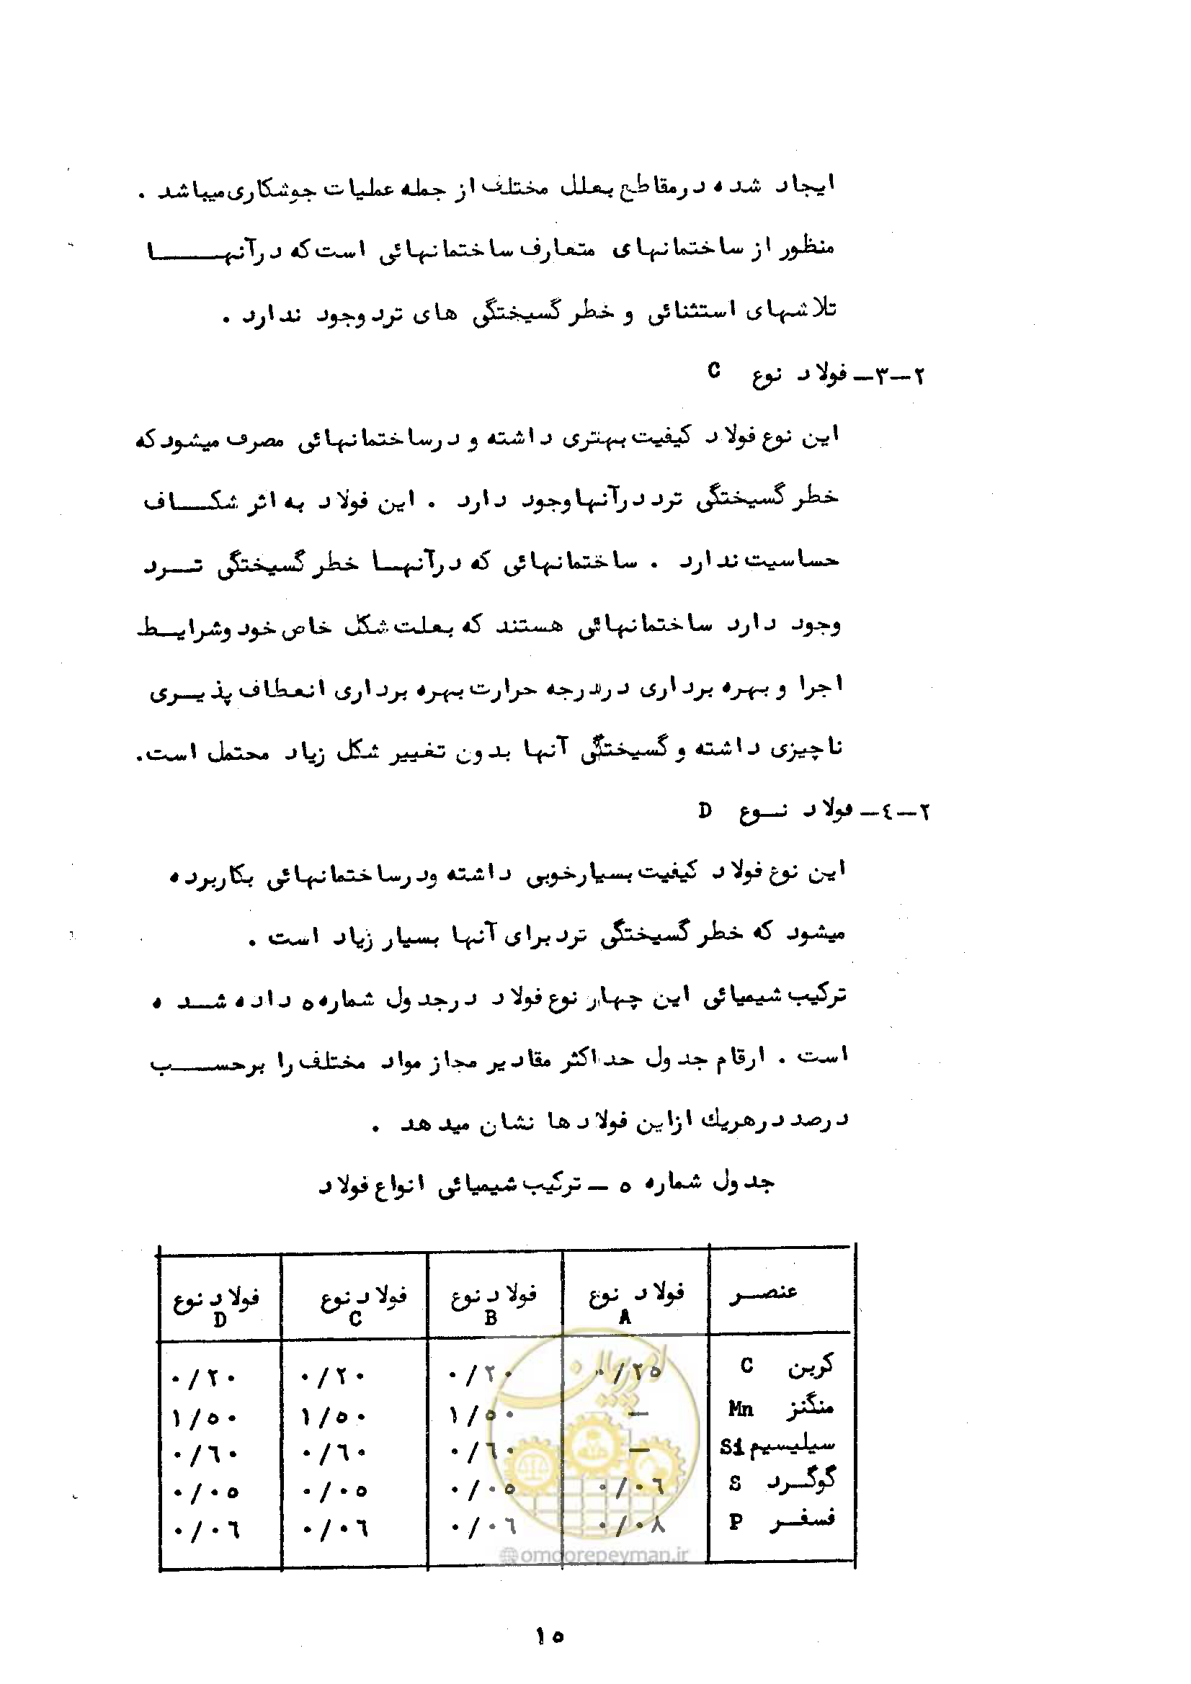 ایجاد شده در مقاطع بعلل مختلف از جمله عملیات جوشکاری میباشد .
منظور از ساختمانهای متعارف ساختمانهائی است که در آنهـــا
تلاشهای استثنائی و خطر گسیختگی های ترد وجود ندارد .
۲-۳- فولاد نوع C
این نوع فولاد کیفیت بهتری داشته و در ساختمانهائی مصرف میشود که
خطر گسیختگی ترد در آنها وجود دارد . این فولاد به اثر شکــاف
حساسیت ندارد . ساختمانهائی که در آنهـا خطر گسیختگی تــرد
وجود دارد ساختمانهائی هستند که بعلت شکل خاص خود و شرایــط
اجرا و بهره برداری در درجه حرارت بهره برداری انعطاف پذیــری
ناچیزی داشته و گسیختگی آنها بدون تغییر شکل زیاد محتمل است.
۲-٤- فولاد نــوع D
این نوع فولاد کیفیت بسیار خوبی داشته و در ساختمانهائی بکار برده
میشود که خطر گسیختگی ترد برای آنها بسیار زیاد است .
ترکیب شیمیائی این چهار نوع فولاد در جدول شماره ٥ داده شــده
است . ارقام جدول حداکثر مقادیر مجاز مواد مختلف را برحســـب
درصد در هریك از این فولادها نشان میدهد .
جدول شماره ٥ – ترکیب شیمیائی انواع فولاد
عنصــر فولاد نوع A فولاد نوع B فولاد نوع C فولاد نوع D
کربن C ۰/۲٥ ۰/۲۰ ۰/۲۰ ۰/۲۰
منگنز Mn — ۱/٥۰ ۱/٥۰ ۱/٥۰
سیلیسیم Si — ۰/٦۰ ۰/٦۰ ۰/٦۰
گوگــرد S ۰/۰٦ ۰/۰٥ ۰/۰٥ ۰/۰٥
فسفــر P ۰/۰۸ ۰/۰٦ ۰/۰٦ ۰/۰٦
امور پیمان
@omoorepeyman.ir
۱٥